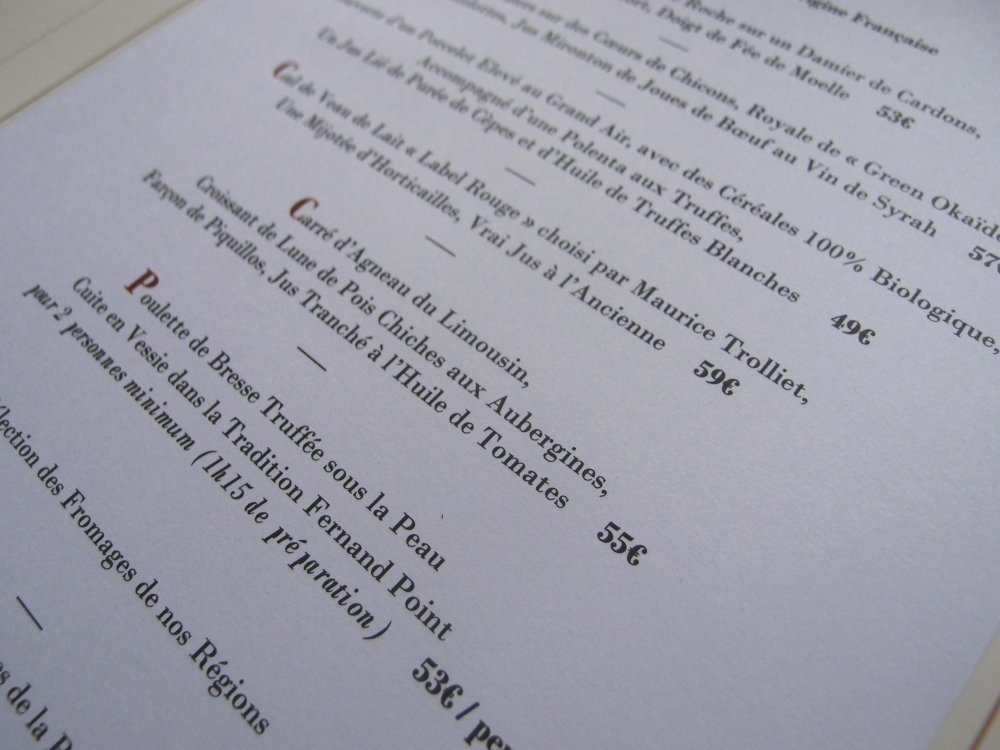 gine Française
Roche sur un Damier de Cardons,
Doigt de Fée de Moelle 53€
sur des Cœurs de Chicons, Royale de « Green Okaïd
Jus Mironton de Joues de Bœuf au Vin de Syrah 57€
d'un Porcelet Elevé au Grand Air, avec des Céréales 100% Biologique,
Accompagné d'une Polenta aux Truffes,
Un Jus Lié de Purée de Cèpes et d'Huile de Truffes Blanches 49€
—
Cul de Veau de Lait « Label Rouge » choisi par Maurice Trolliet,
Une Mijotée d'Horticailles, Vrai Jus à l'Ancienne 59€
—
Carré d'Agneau du Limousin,
Croissant de Lune de Pois Chiches aux Aubergines,
Farçon de Piquillos, Jus Tranché à l'Huile de Tomates 55€
—
Poulette de Bresse Truffée sous la Peau
Cuite en Vessie dans la Tradition Fernand Point
pour 2 personnes minimum (1h15 de préparation) 53€ / per
élection des Fromages de nos Régions
—
es de la P